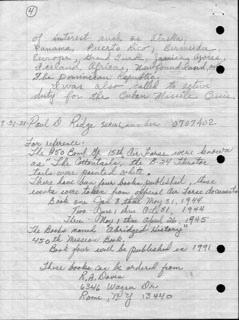 4
of interest such as Alaska,
Panama, Puerto Rico, Bermuda
Europe, Grand Turk, Azores,
Iceland, Africa, Newfoundland,
The Dominican Republic
I was also called to active
duty for the Cuban Missile Crisis.
7-31-21 Paul D. Ridge Serial number 0707402
For reference:
The 450 Bomb Gp. 15th Air Force were known
as "The Cottontails", the B-24 Liberator
tails were painted white.
There have been four books published, these
books were taken from official Air Force documents
Book one Jan 8 thru May 31, 1944
Two June 1 thru 1944
Three 1 thru 26, 1945
The Books named "abridged History"
450th Mission Book.
Book four will be published in 1991
These books can be ordered from
R.A. Davis
6346 Wagen Dr.
Rome, NY 13440